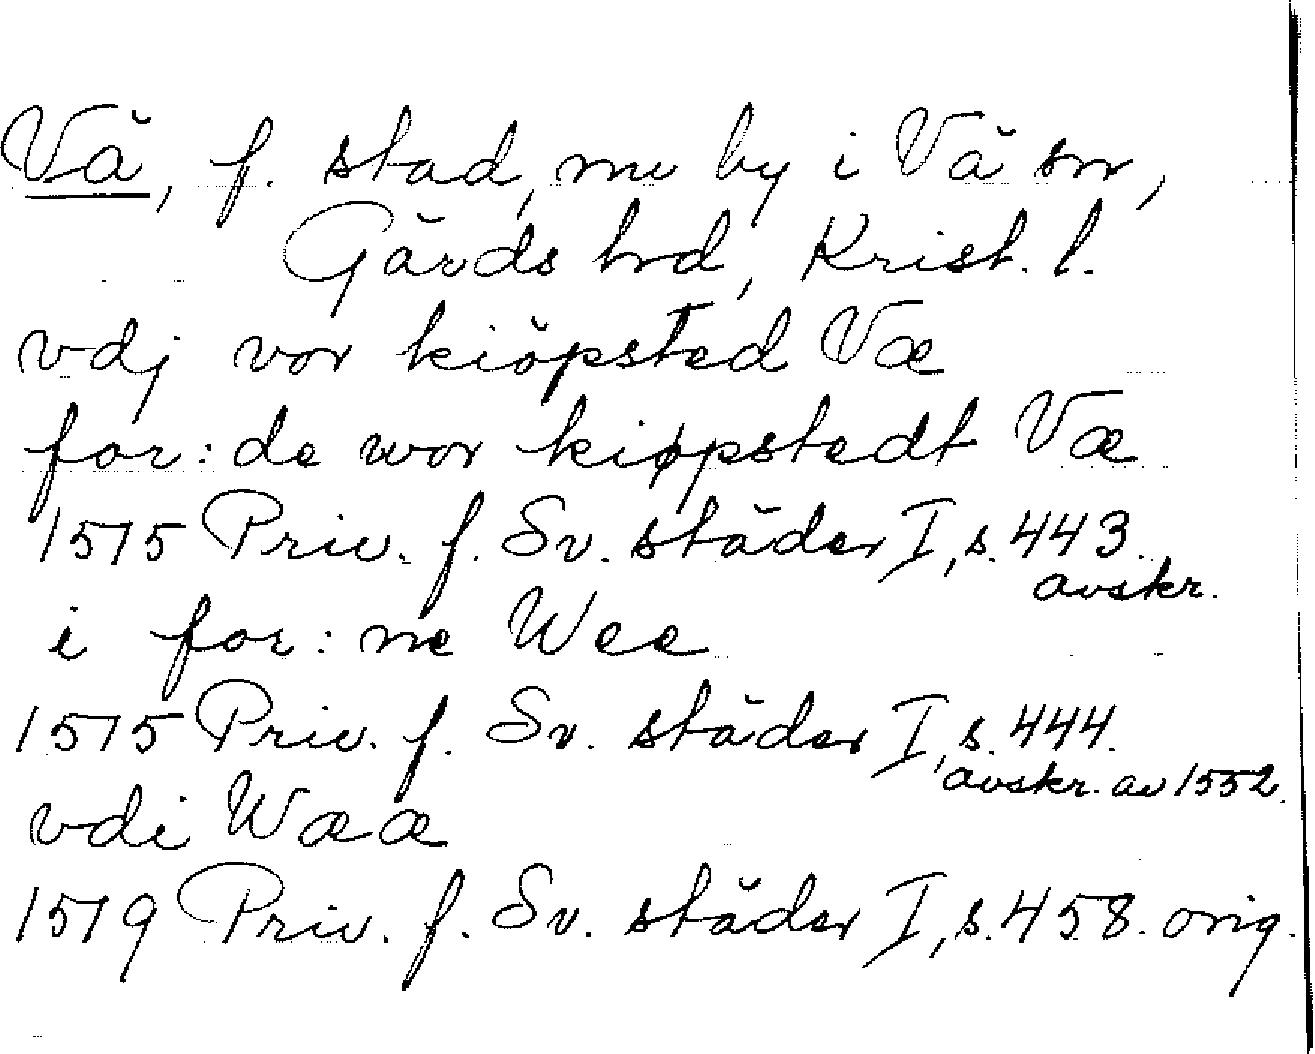 Vä, f. stad, nu by i Vä sn,
Gärds hd, Krist. l.
vdj vor kiöpsted Væ
for:de wor kiøpstedt Væ
1515 Priv. f. Sv. städer I, s. 443.
avskr.
i for:ne Wee
1515 Priv. f. Sv. städer I, s. 444.
avskr. av 1552.
vdi Wææ
1519 Priv. f. Sv. städer I, s. 458. orig.